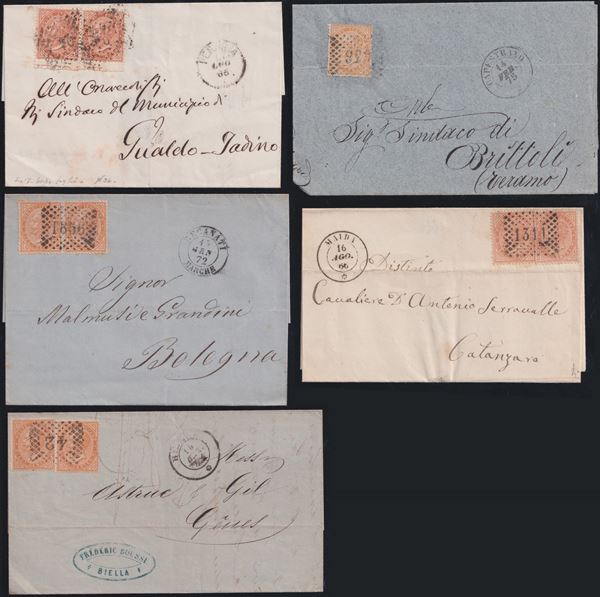 LUG
66
All'
Sindaco del Municipio di
Gualdo-Tadino
14
75
Al
Sig. Sindaco di
Brittoli
(Teramo)
1856
RECANATI
GEN
72
MARCHE
Signor
Malmusi e Grandini
Bologna
1311
MAIDA
16
AGO.
66
Distinto
Cavaliere D. Antonio Serravalle
Catanzaro
42
Messrs
Astruc & Gil
Gênes
FRÉDÉRIC
BIELLA